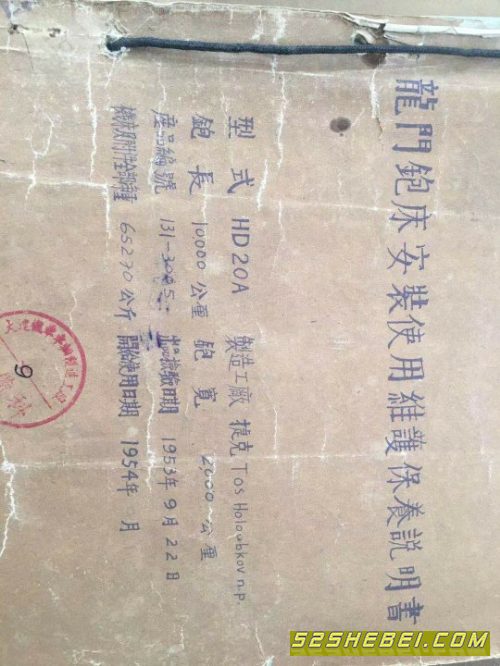 龍門鉋床安裝使用維護保養説明書
型式 HD20A 製造工廠 捷克 Tos Holoubkov n.p.
鉋長 10,000公厘 鉋寬 2000公厘
産品編號 131-3005 出品檢驗日期 1953年9月22日
65270公斤 開始使用日期 1954年 月
9
52SHEBEI.COM